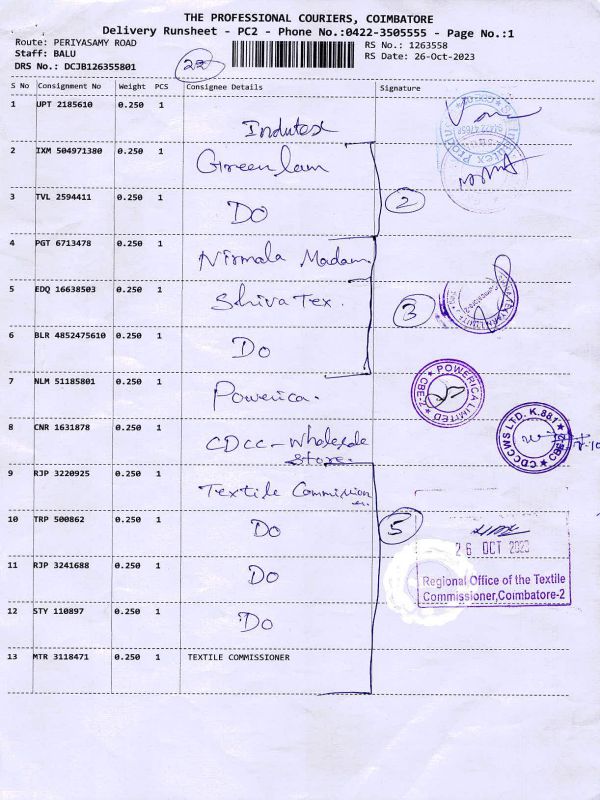 THE PROFESSIONAL COURIERS, COIMBATORE
Delivery Runsheet - PC2 - Phone No.:0422-3505555 - Page No.:1
Route: PERIYASAMY ROAD
RS No.: 1263558
Staff: BALU
RS Date: 26-Oct-2023
DRS No.: DCJB126355801
22
S No Consignment No Weight PCS Consignee Details Signature
1 UPT 2185610 0.250 1 Indutex
2 IXM 504971380 0.250 1 Greenlam
3 TVL 2594411 0.250 1 DO
2
4 PGT 6713478 0.250 1 Nirmala Madam
5 EDQ 16638503 0.250 1 Shiva Tex.
3
6 BLR 4852475610 0.250 1 Do
7 NLM 51185801 0.250 1 Powerica.
POWERICA LIMITED
CBE-
8 CNR 1631878 0.250 1 CDCC - Wholesale
Store.
CDCCWS LTD. K.881
9 RJP 3220925 0.250 1 Textile Commission
10 TRP 500862 0.250 1 Do
5
26 OCT 2023
11 RJP 3241688 0.250 1 Do
Regional Office of the Textile
Commissioner, Coimbatore-2
12 STY 110897 0.250 1 Do
13 MTR 3118471 0.250 1 TEXTILE COMMISSIONER